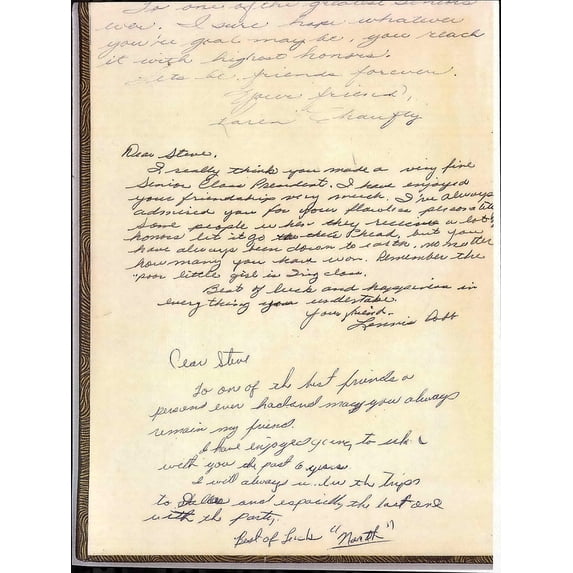 To one of the greatest Seniors
ever. I sure hope whatever
you're goal may be, you reach
it with highest honors.
Lets be friends forever.
Your friend,
Karen
Dear Steve,
I really think you made a very fine
Senior Class President. I have enjoyed
your friendship very much. I've always
admired you for your flawless personality
Some people when they receive a lot of
honors let it go to their head, but you
have always been down to earth, no matter
how many you have won. Remember the
"poor little girl in Eng class.
Best of luck and happiness in
everything you undertake.
Your friend,
Dear Steve
To one of the best friends a
person ever had and may you always
remain my friend.
I have enjoyed going to
with you the past 6 years.
I will always the Trips
to and especially the last one
with the party.
Best of Luck